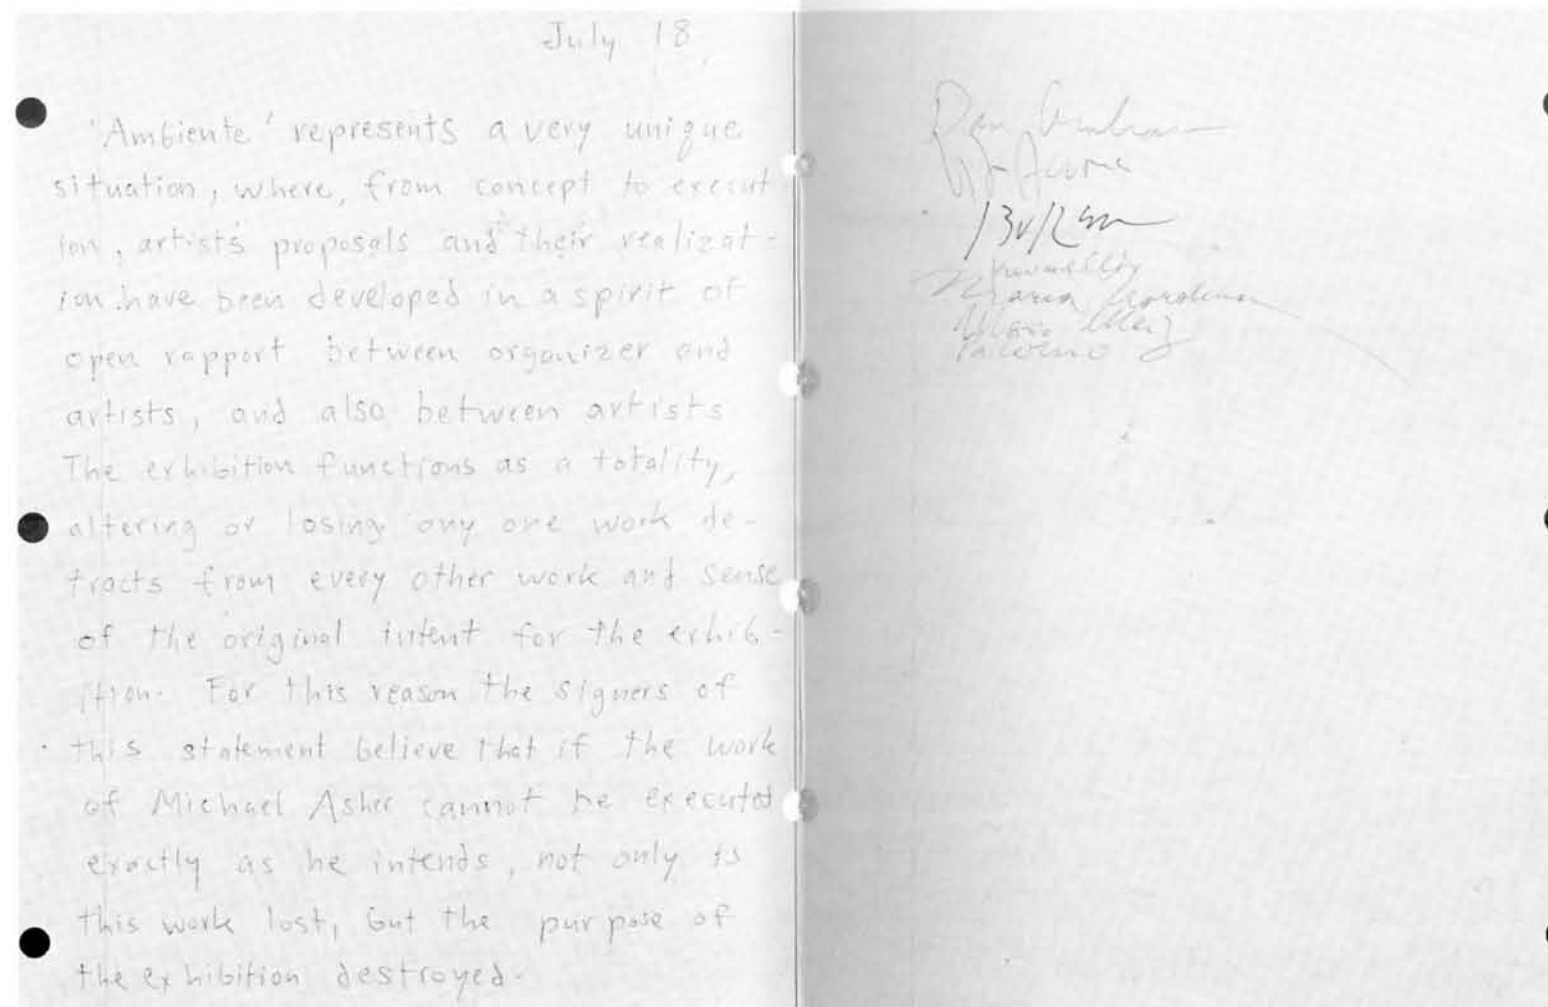 July 18
"Ambiente" represents a very unique
situation, where, from concept to execut
ion, artists proposals and their realizat-
ion have been developed in a spirit of
open rapport between organizer and
artists, and also between artists
The exhibition functions as a totality,
altering or losing any one work de-
tracts from every other work and sense
of the original intent for the exhib-
ition. For this reason the signers of
this statement believe that if the work
of Michael Asher cannot be executed
exactly as he intends, not only is
this work lost, but the purpose of
the exhibition destroyed.
Dan Graham
Maria Nordman
Mario Merz
Palermo